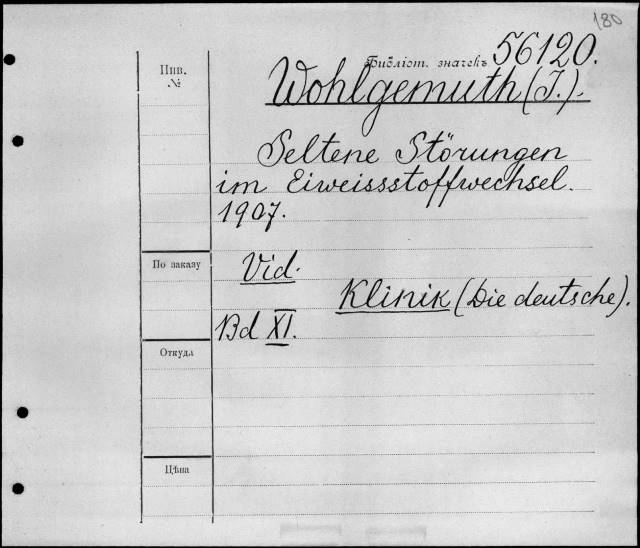 180
Библіот. значекъ 56120.
Инв. №
Wohlgemuth (J.).
Seltene Störungen
im Eiweissstoffwechsel.
1907.
По заказу
Vid.
Klinik (Die deutsche).
Bd XI.
Откуда
Цѣна